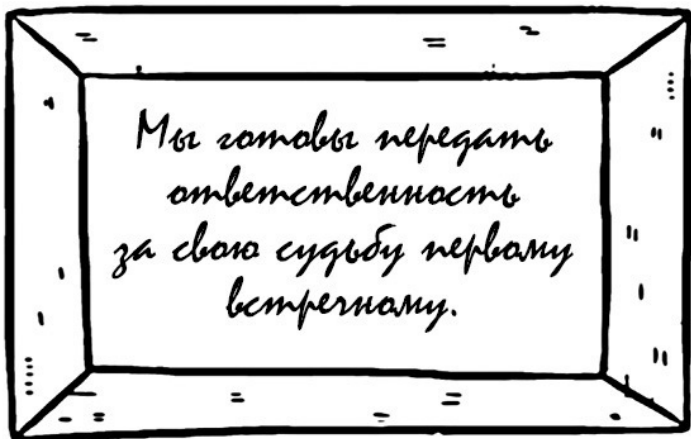 Мы готовы передать
ответственность
за свою судьбу первому
встречному.